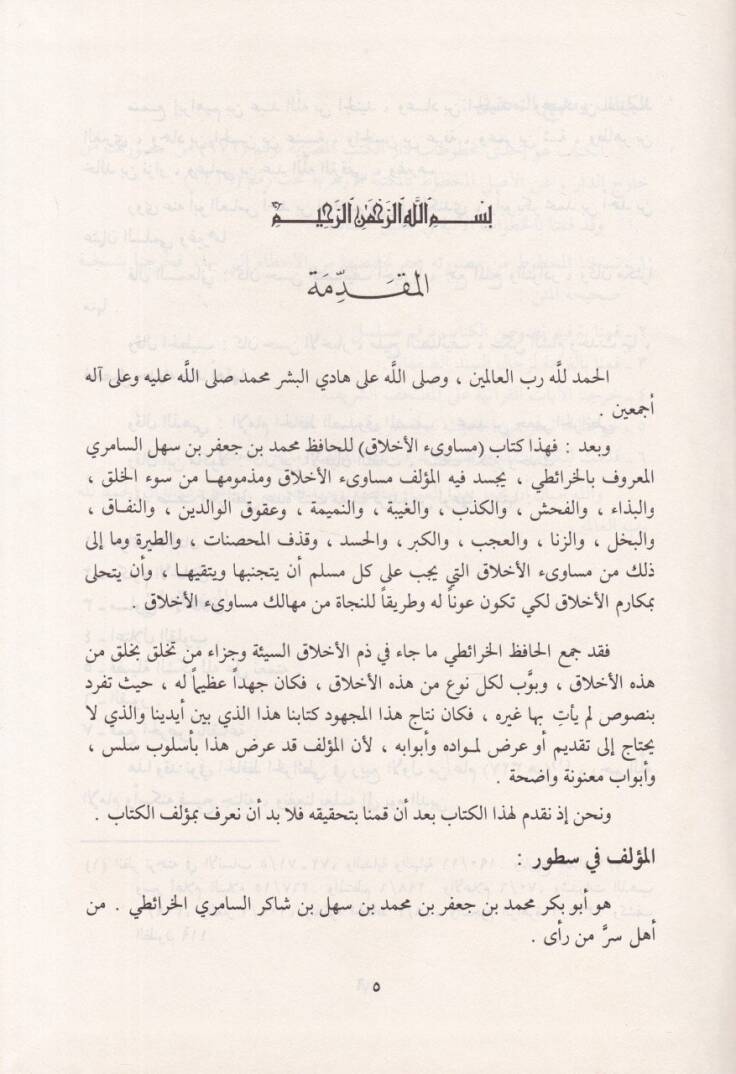 بِسْمِ اللَّهِ الرَّحْمَنِ الرَّحِيمِ
المقَدِّمَة
الحمد للَّه رب العالمين ، وصلى اللَّه على هادي البشر محمد صلى اللَّه عليه وعلى آله
أجمعين .
وبعد : فهذا كتاب (مساوىء الأخلاق) للحافظ محمد بن جعفر بن سهل السامري
المعروف بالخرائطي ، يجسد فيه المؤلف مساوىء الأخلاق ومذمومها من سوء الخلق ،
والبذاء ، والفحش ، والكذب ، والغيبة ، والنميمة ، وعقوق الوالدين ، والنفاق ،
والبخل ، والزنا ، والعجب ، والكبر ، والحسد ، وقذف المحصنات ، والطيرة وما إلى
ذلك من مساوىء الأخلاق التي يجب على كل مسلم أن يتجنبها ويتقيها ، وأن يتحلى
بمكارم الأخلاق لكي تكون عوناً له وطريقاً للنجاة من مهالك مساوىء الأخلاق .
فقد جمع الحافظ الخرائطي ما جاء في ذم الأخلاق السيئة وجزاء من تخلق بخلق من
هذه الأخلاق ، وبوَّب لكل نوع من هذه الأخلاق ، فكان جهداً عظيماً له ، حيث تفرد
بنصوص لم يأتِ بها غيره ، فكان نتاج هذا المجهود كتابنا هذا الذي بين أيدينا والذي لا
يحتاج إلى تقديم أو عرض لمواده وأبوابه ، لأن المؤلف قد عرض هذا بأسلوب سلس ،
وأبواب معنونة واضحة .
ونحن إذ نقدم لهذا الكتاب بعد أن قمنا بتحقيقه فلا بد أن نعرف بمؤلف الكتاب .
المؤلف في سطور :
هو أبو بكر محمد بن جعفر بن محمد بن سهل بن شاكر السامري الخرائطي . من
أهل سرَّ من رأى .
٥